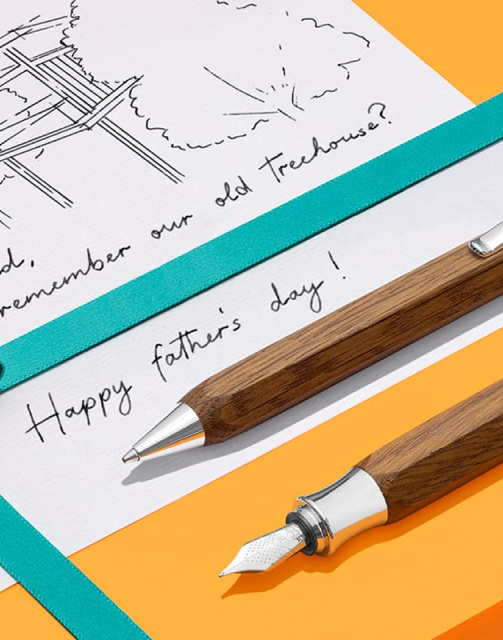 d,
remember our old treehouse?
Happy father's day!